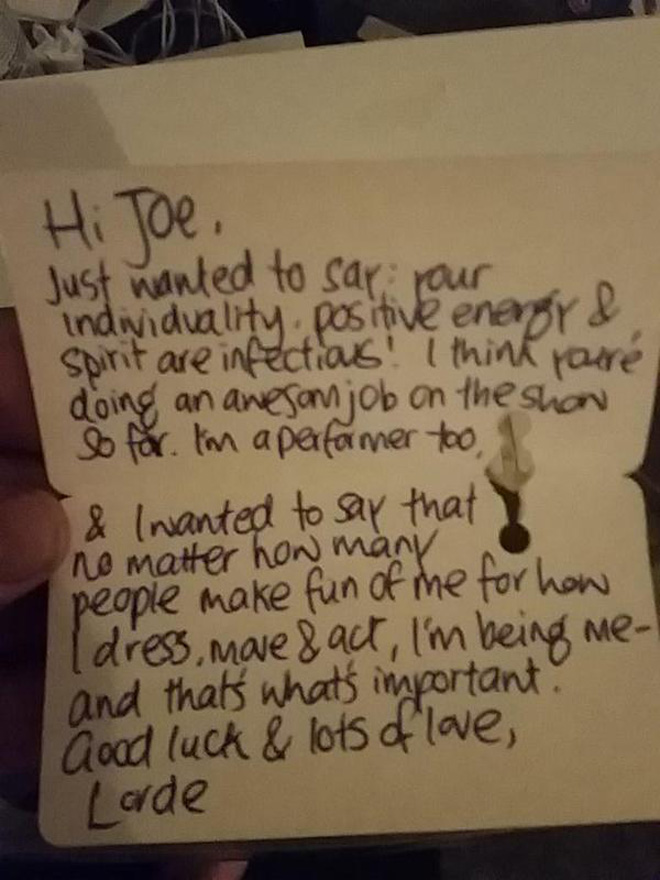 Hi Joe,
Just wanted to say: your
individuality, positive energy &
spirit are infectious! I think you're
doing an awesom job on the show
so far. I'm a performer too,
& I wanted to say that
no matter how many
people make fun of me for how
I dress, move & act, I'm being me-
and that's what's important.
Good luck & lots of love,
Lorde